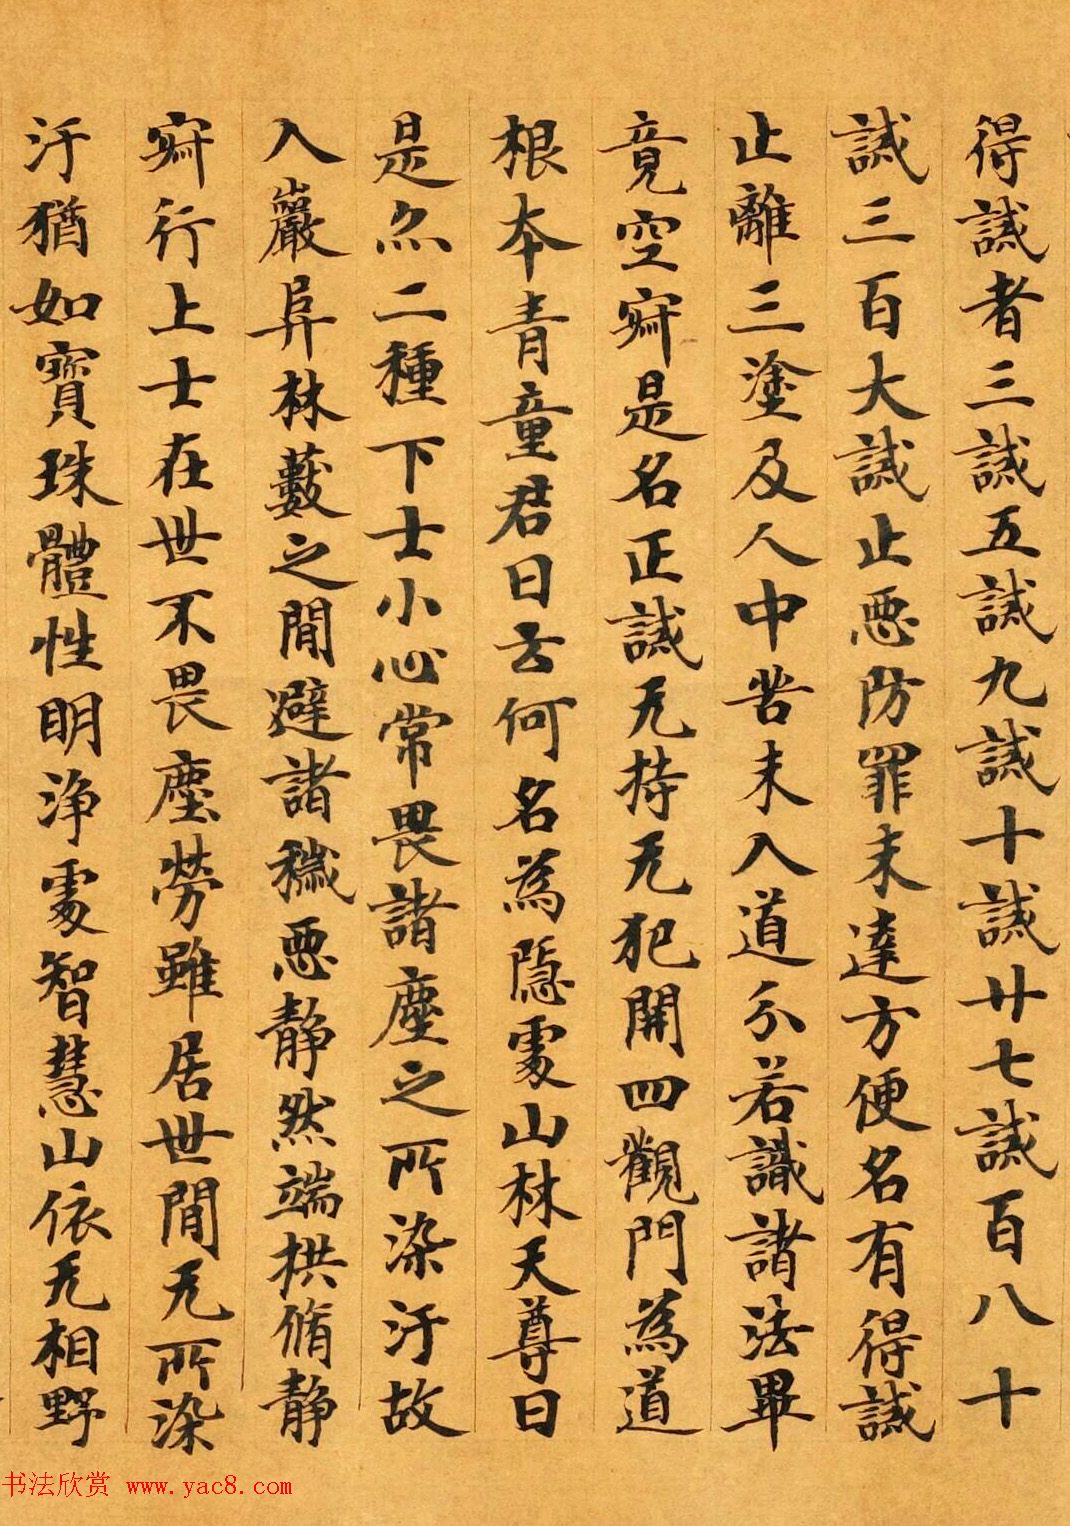 得誡者三誡五誡九誡十誡廿七誡百八十
誡三百大誡止惡防罪未達方便名有得誡
止離三塗及人中苦未入道分若識諸法畢
竟空寂是名正誡无持无犯開四觀門為道
根本青童君曰云何名為隱處山林天尊曰
是亦二種下士小心常畏諸塵之所染汙故
入巖阜林藪之間避諸穢惡靜然端拱脩靜
寂行上士在世不畏塵勞雖居世間无所染
汙猶如寶珠體性明淨處智慧山依无相野
书法欣赏 www.yac8.com